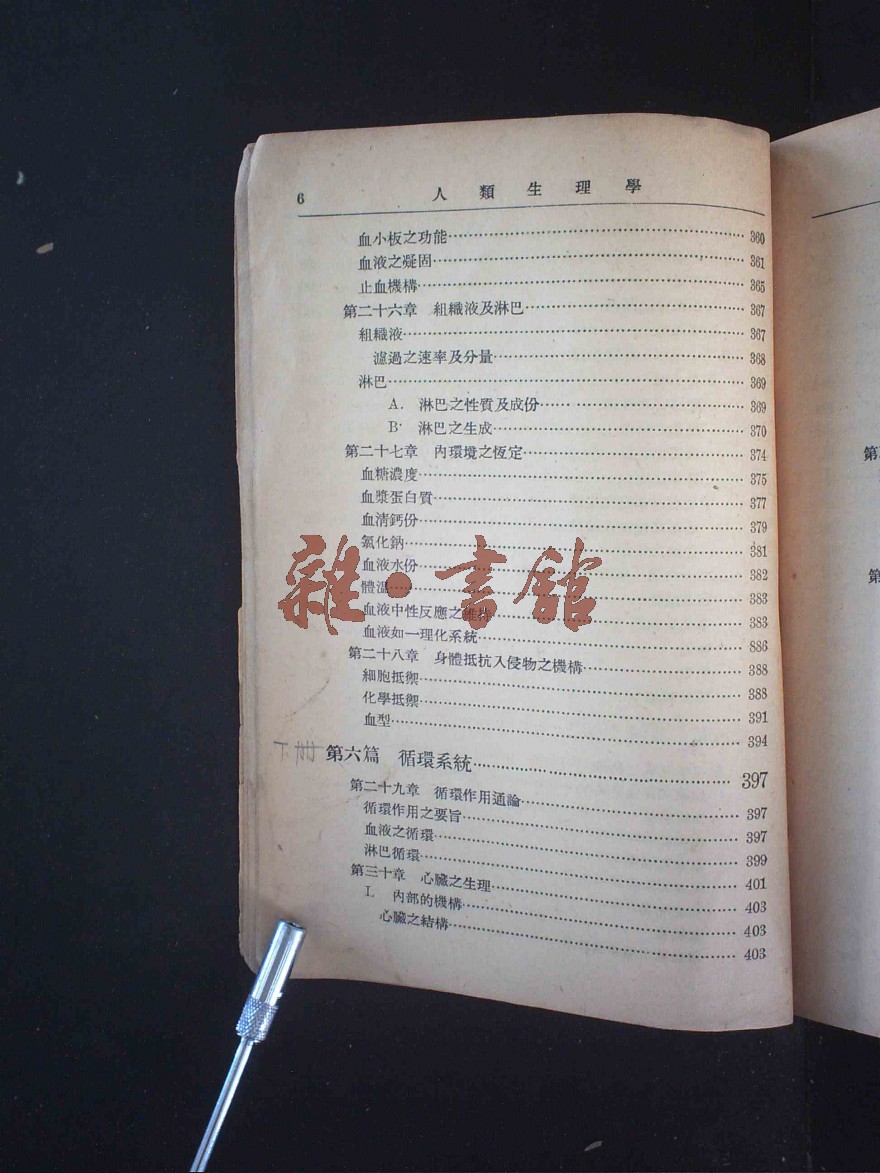 6 人類生理學
血小板之功能……360
血液之凝固……361
止血機構……365
第二十六章 組織液及淋巴……367
組織液……367
濾過之速率及分量……368
淋巴……369
A. 淋巴之性質及成份……369
B· 淋巴之生成……370
第二十七章 內環境之恆定……374
血糖濃度……375
血漿蛋白質……377
血清鈣份……379
氯化鈉……381
血液水份……382
體溫……383
血液中性反應之維持……383
血液如一理化系統……886
第二十八章 身體抵抗入侵物之機構……388
細胞抵禦……388
化學抵禦……391
血型……394
第六篇 循環系統……397
第二十九章 循環作用通論……397
循環作用之要旨……397
血液之循環……399
淋巴循環……401
第三十章 心臟之生理……403
I. 內部的機構……403
心臟之結構……403
雜·書館
第
第